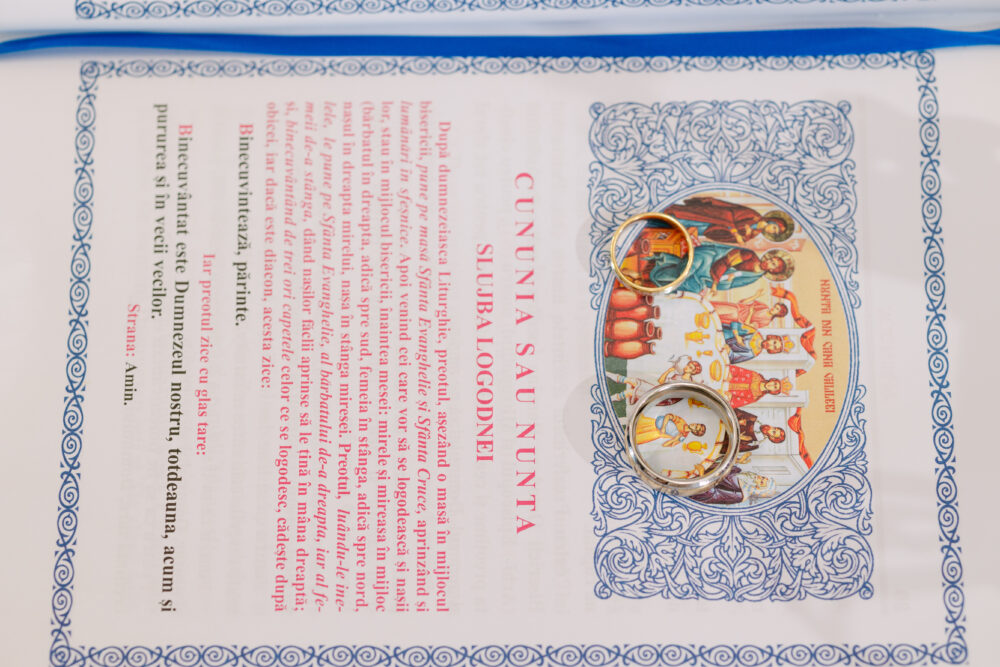 NUNTA DIN CANA GALILEI
CUNUNIA SAU NUNTA
SLUJBA LOGODNEI
După dumnezeiasca Liturghie, preotul, așezând o masă în mijlocul
bisericii, pune pe masă Sfânta Evanghelie și Sfânta Cruce, aprinzând și
lumânări în sfeșnice. Apoi venind cei care vor să se logodească și nașii
lor, stau în mijlocul bisericii, înaintea mesei: mirele și mireasa în mijloc
(bărbatul în dreapta, adică spre sud, femeia în stânga, adică spre nord,
nașul în dreapta mirelui, nașa în stânga miresei. Preotul, luându-le ine-
lele, le pune pe Sfânta Evanghelie, al bărbatului de-a dreapta, iar al fe-
meii de-a stânga, dând nașilor făclii aprinse să le țină în mâna dreaptă;
și, binecuvântând de trei ori capetele celor ce se logodesc, cădește după
obicei, iar dacă este diacon, acesta zice:
Binecuvintează, părinte.
Iar preotul zice cu glas tare:
Binecuvântat este Dumnezeul nostru, totdeauna, acum și
pururea și în vecii vecilor.
Strana: Amin.